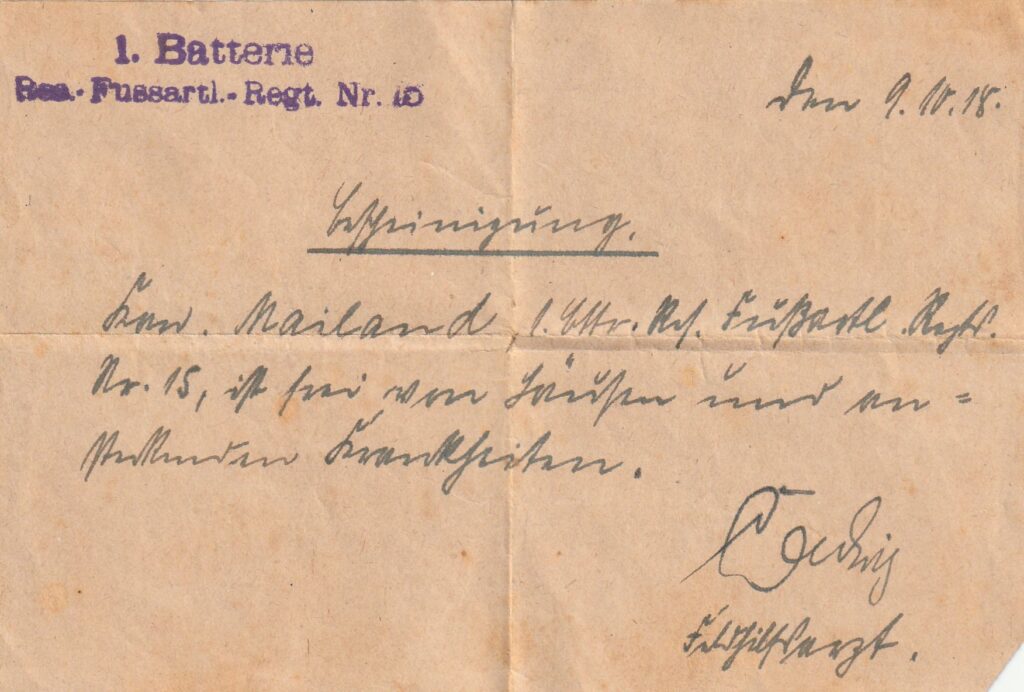 1. Batterie
Res.- Fussartl.- Regt. Nr. 15
den 9.10.18.
Bescheinigung.
Kan. Mailand 1. Bttr. Res. Fußartl. Regts.
Nr. 15, ist frei von Läusen und an=
steckenden Krankheiten.
Feldhilfsarzt.